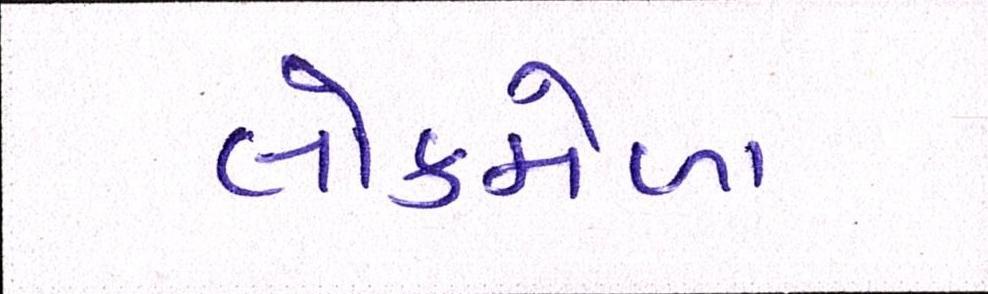 લોકમેળા